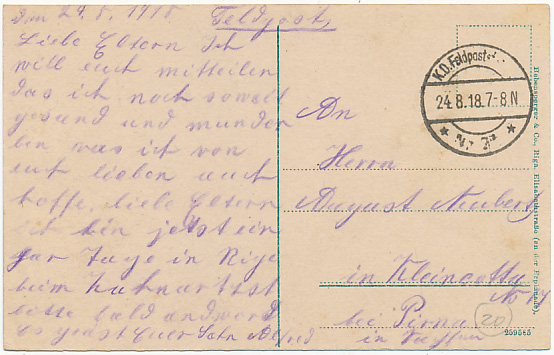 Den 24.8.1918
Feldpost
Liebe Eltern Ich
will euch mitteilen
das ich noch soweit
gesund und munder
bin was ich von
euch lieben auch
hoffe liebe Eltern
ich bin jetst ein
par Tage in Riga
beim Zahnartst
bitte bald andword
Es grüst Euer Sohn Alfred
K.D. Feldpost
24.8.18.7-8.N
An
Herrn
August Neubert
in Kleincotta
No
bei Pirna
in Sachsen
20
Hebensperger & Co., Riga, Elisabethstraße (an der Esplanade).
259565